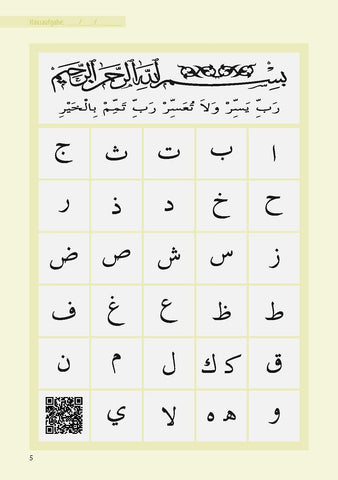 Hausaufgabe: ___/___/______
بِسْمِ اللهِ الرَّحْمٰنِ الرَّحِيْمِ
رَبِّ يَسِّرْ وَلَا تُعَسِّرْ رَبِّ تَمِّمْ بِالْخَيْرِ
ا ب ت ث ج
ح خ د ذ ر
ز س ش ص ض
ط ظ ع غ ف
ق ك ک ل م ن
و ه ه لا ي
5